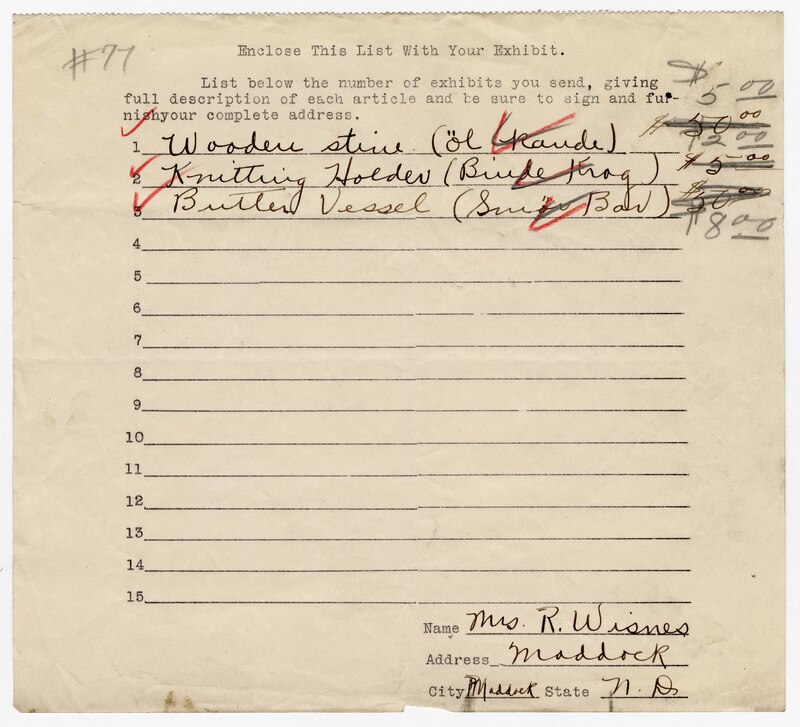 #77
Enclose This List With Your Exhibit.
List below the number of exhibits you send, giving
full description of each article and be sure to sign and fur-
nishyour complete address.
$5 00
1 Wooden stine (öl Kande) $50 00
$2 00
2 Knitting Holder (Binde Krog) $5 00
3 Butter Vessel (Smör Bav) $50 00
$8 00
4
5
6
7
8
9
10
11
12
13
14
15
Name Mrs. R. Wisnes
Address Maddock
City Maddock State N. D.